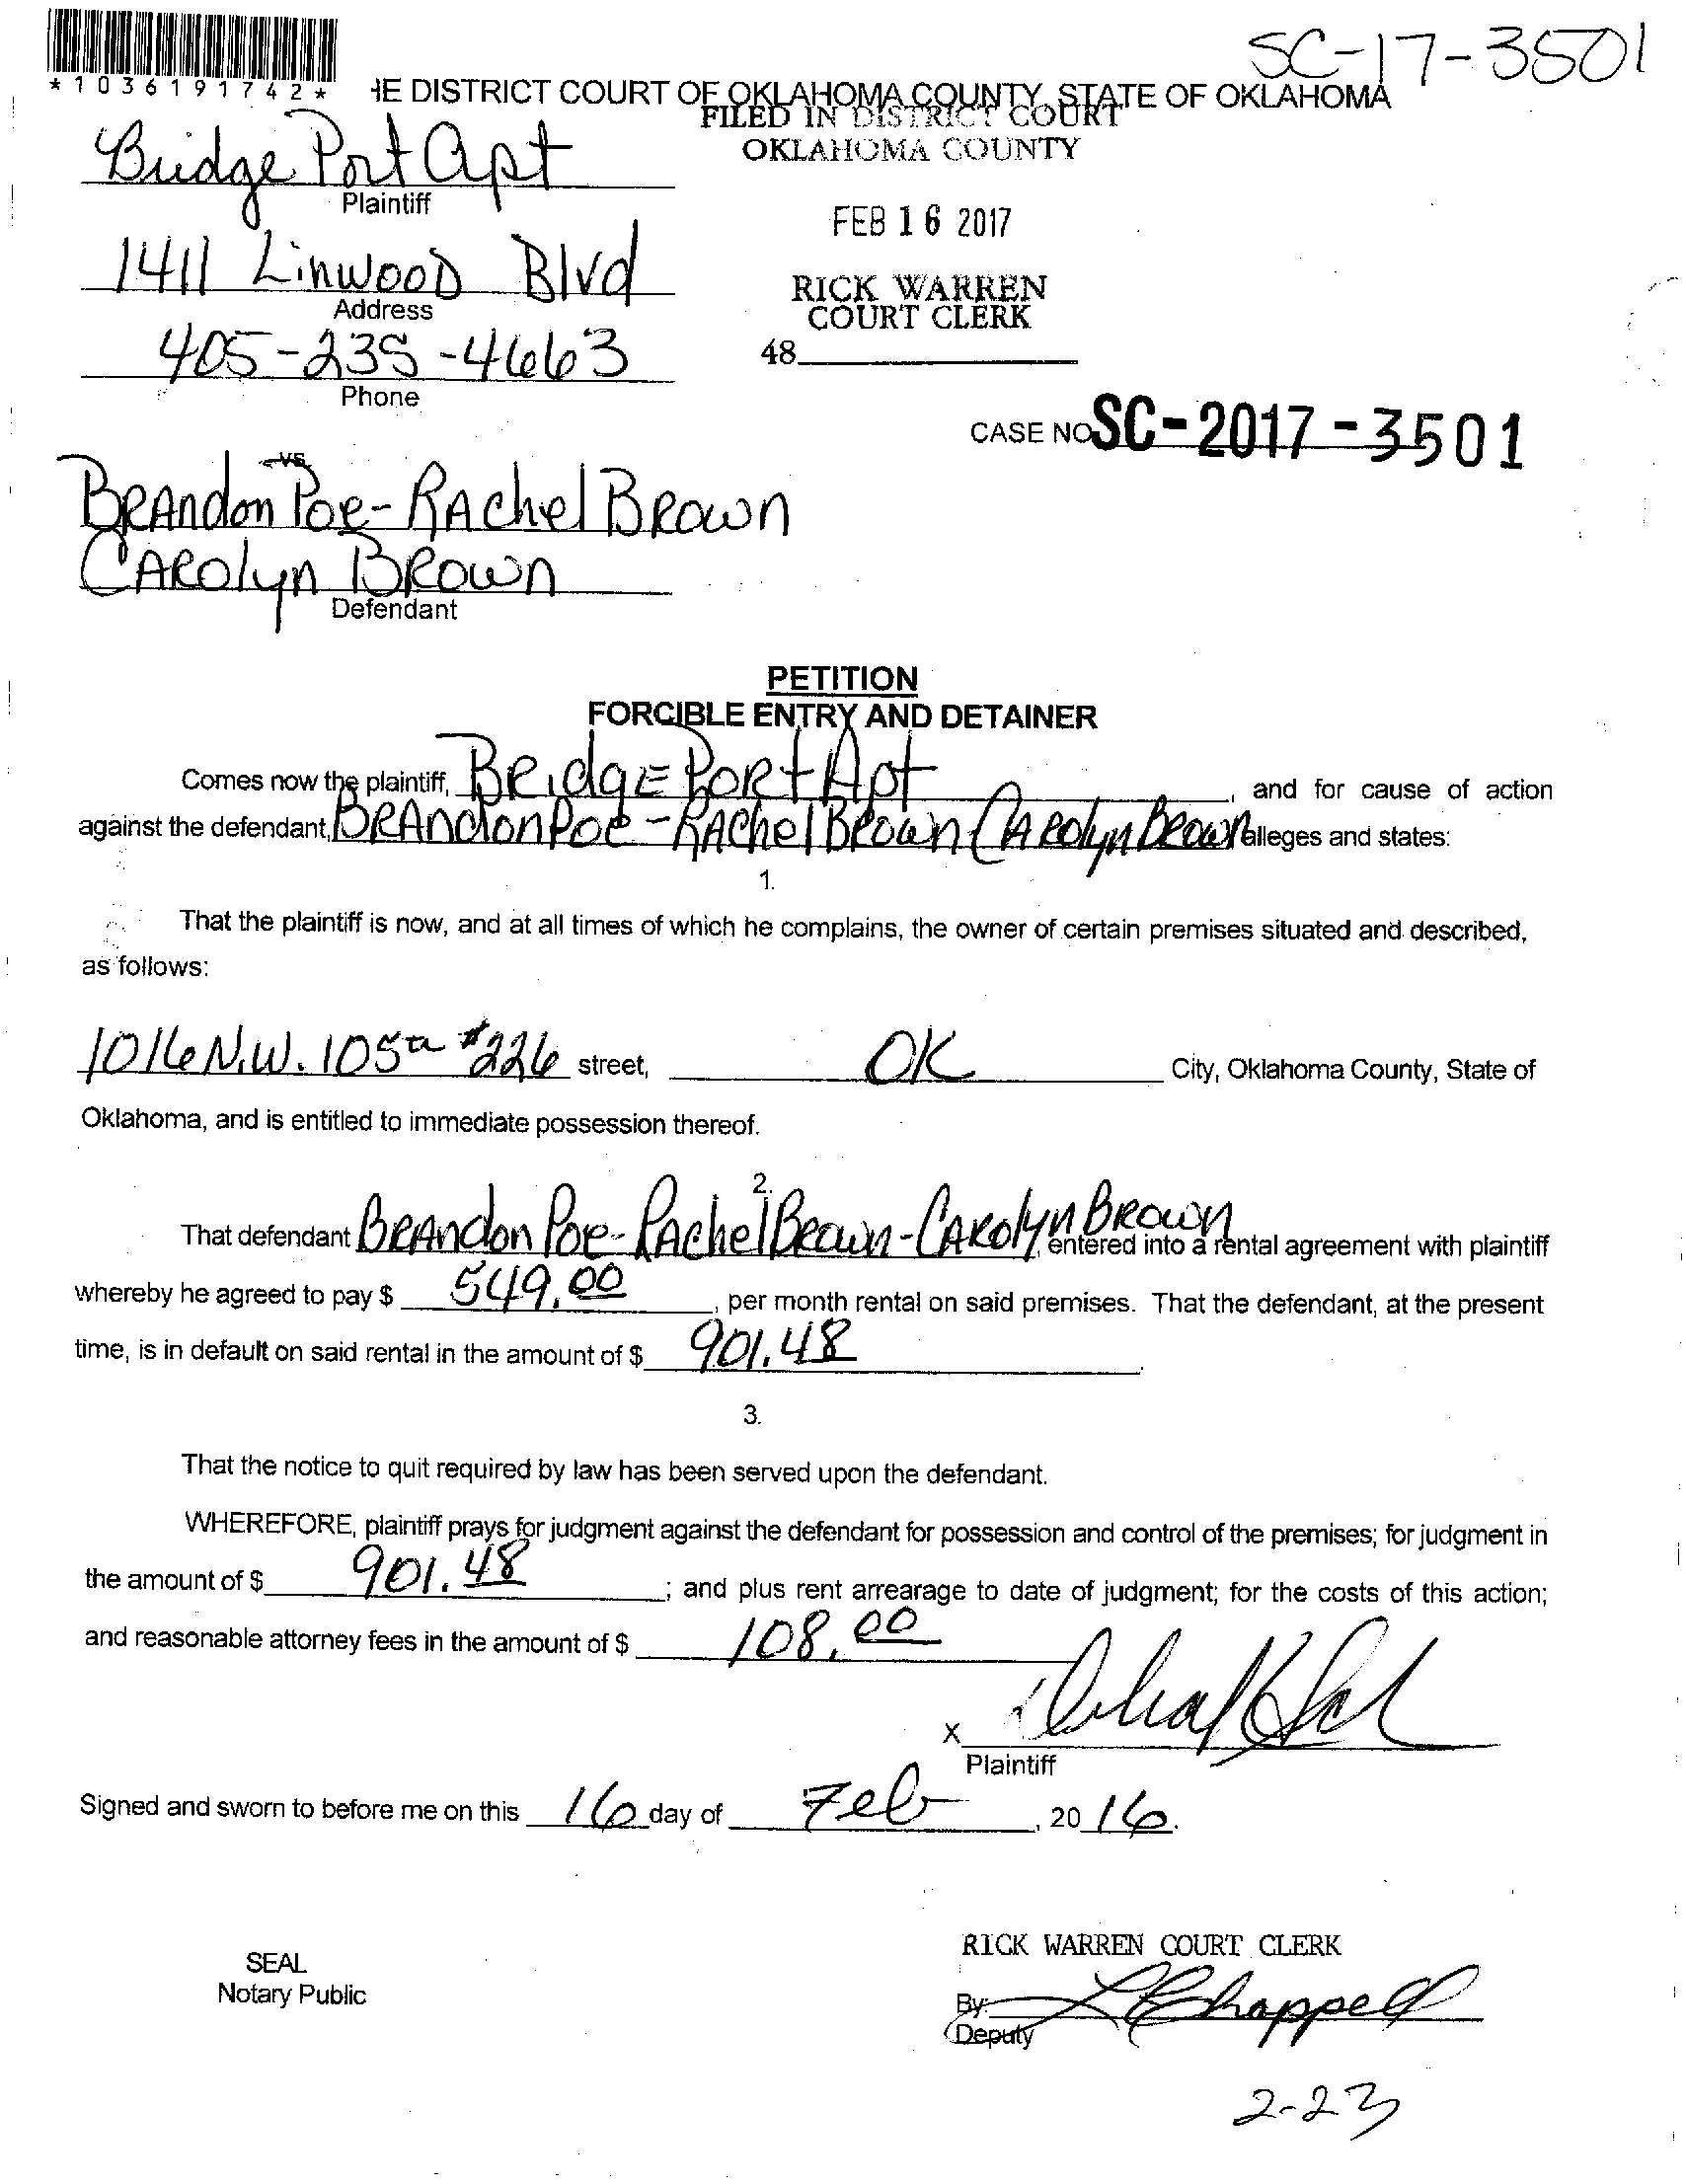 SC-17-3501
*1036191742*
HE DISTRICT COURT OF OKLAHOMA COUNTY, STATE OF OKLAHOMA
FILED IN DISTRICT COURT
OKLAHOMA COUNTY
Bridge Port Apt
Plaintiff
FEB 16 2017
1411 Linwood Blvd
Address
RICK WARREN
COURT CLERK
405-235-4663
Phone
48
CASE NO SC-2017-3501
-vs-
Brandon Poe - Rachel Brown
Carolyn Brown
Defendant
PETITION
FORCIBLE ENTRY AND DETAINER
Comes now the plaintiff, Bridge Port Apt, and for cause of action
against the defendant, Brandon Poe - Rachel Brown Carolyn Brown alleges and states:
1.
That the plaintiff is now, and at all times of which he complains, the owner of certain premises situated and described,
as follows:
1016 N.W. 105th #226 street, OK City, Oklahoma County, State of
Oklahoma, and is entitled to immediate possession thereof.
2.
That defendant Brandon Poe - Rachel Brown - Carolyn Brown, entered into a rental agreement with plaintiff
whereby he agreed to pay $ 549.00, per month rental on said premises. That the defendant, at the present
time, is in default on said rental in the amount of $ 901.48.
3.
That the notice to quit required by law has been served upon the defendant.
WHEREFORE, plaintiff prays for judgment against the defendant for possession and control of the premises; for judgment in
the amount of $ 901.48; and plus rent arrearage to date of judgment; for the costs of this action;
and reasonable attorney fees in the amount of $ 108.00
X
Plaintiff
Signed and sworn to before me on this 16 day of Feb, 20 16.
RICK WARREN COURT CLERK
SEAL
Notary Public
By: Chappell
Deputy
2-23